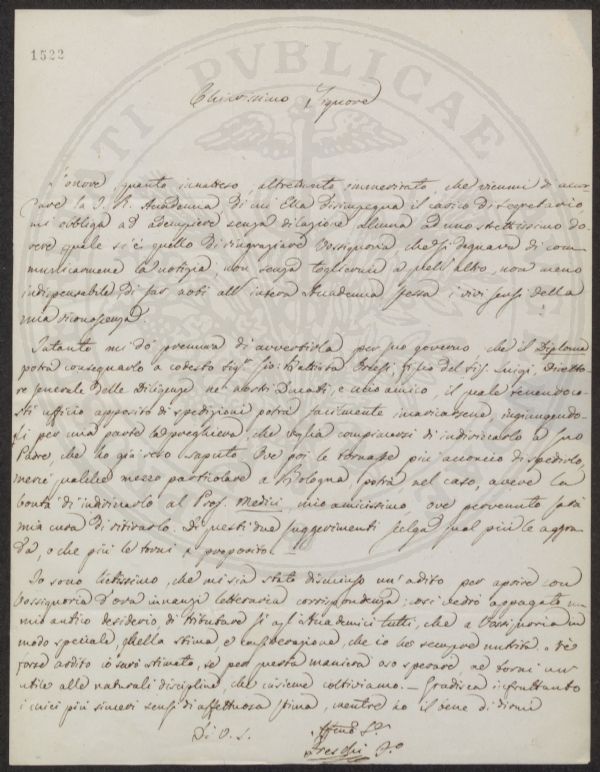 1522
PVBLICAE
Chiarissimo Signore
L'onore, quanto inatteso, altrettanto immeritato, che viemmi di
la I. R. Accademia di cui Ella disimpegna il carico di Segretario
mi obbliga ad adempiere senza dilazione alcuna ad uno strettissimo do-
vere quale si è quello di ringraziare Vossignoria che si degnava di com-
municarmene la notizia; non senza togliermi a quell'altro, non meno
indispensabile, di far noti all'intera Accademia stessa i vivi sensi della
mia riconoscenza
Intanto mi dò premura di avvertirla per suo governo, che il Diploma
potrà consegnarlo a codesto Sigr. Gio: Battista figlio del Sig. Luigi, Diretto-
re Generale delle Diligenze ne' nostri Ducati, e mio amico, il quale tenendo co-
stì uffizio apposito di spedizioni potrà facilmente incaricarsene, ingiungendo-
gli per mia parte la preghiera, che voglia compiacersi di indirizzarlo a suo
Padre, che ho già reso saputo. Ove poi le tornasse più acconcio di spedirlo,
mercè qualche mezzo particolare a Bologna potrà, nel caso, avere la
bontà di indirizzarlo al Prof. Medici mio amicissimo, ove pervenuto sarà
mia cura di ritirarlo. Di questi due suggerimenti scelga qual più le aggra-
da, o che più le torni a proposito.
Io sono lietissimo, che mi sia stato dischiuso un'adito per aprire con
Vossignoria d'ora innanzi letteraria corrispondenza; così vedrò appagato un
mio antico desiderio di tributare sì agl'Accademici tutti, che a Vossignoria in
modo speciale, quella stima, e considerazione, che io ho sempre nutrita. Nè
forse ardito io sarò stimato, se per questa maniera oso sperare ne torni un'
utile alle naturali discipline, che insieme coltiviamo. — Gradisca infrattanto
i miei più sinceri sensi di affettuosa stima, mentre ho il bene di dirmi
Di V. S.
Affmo S.